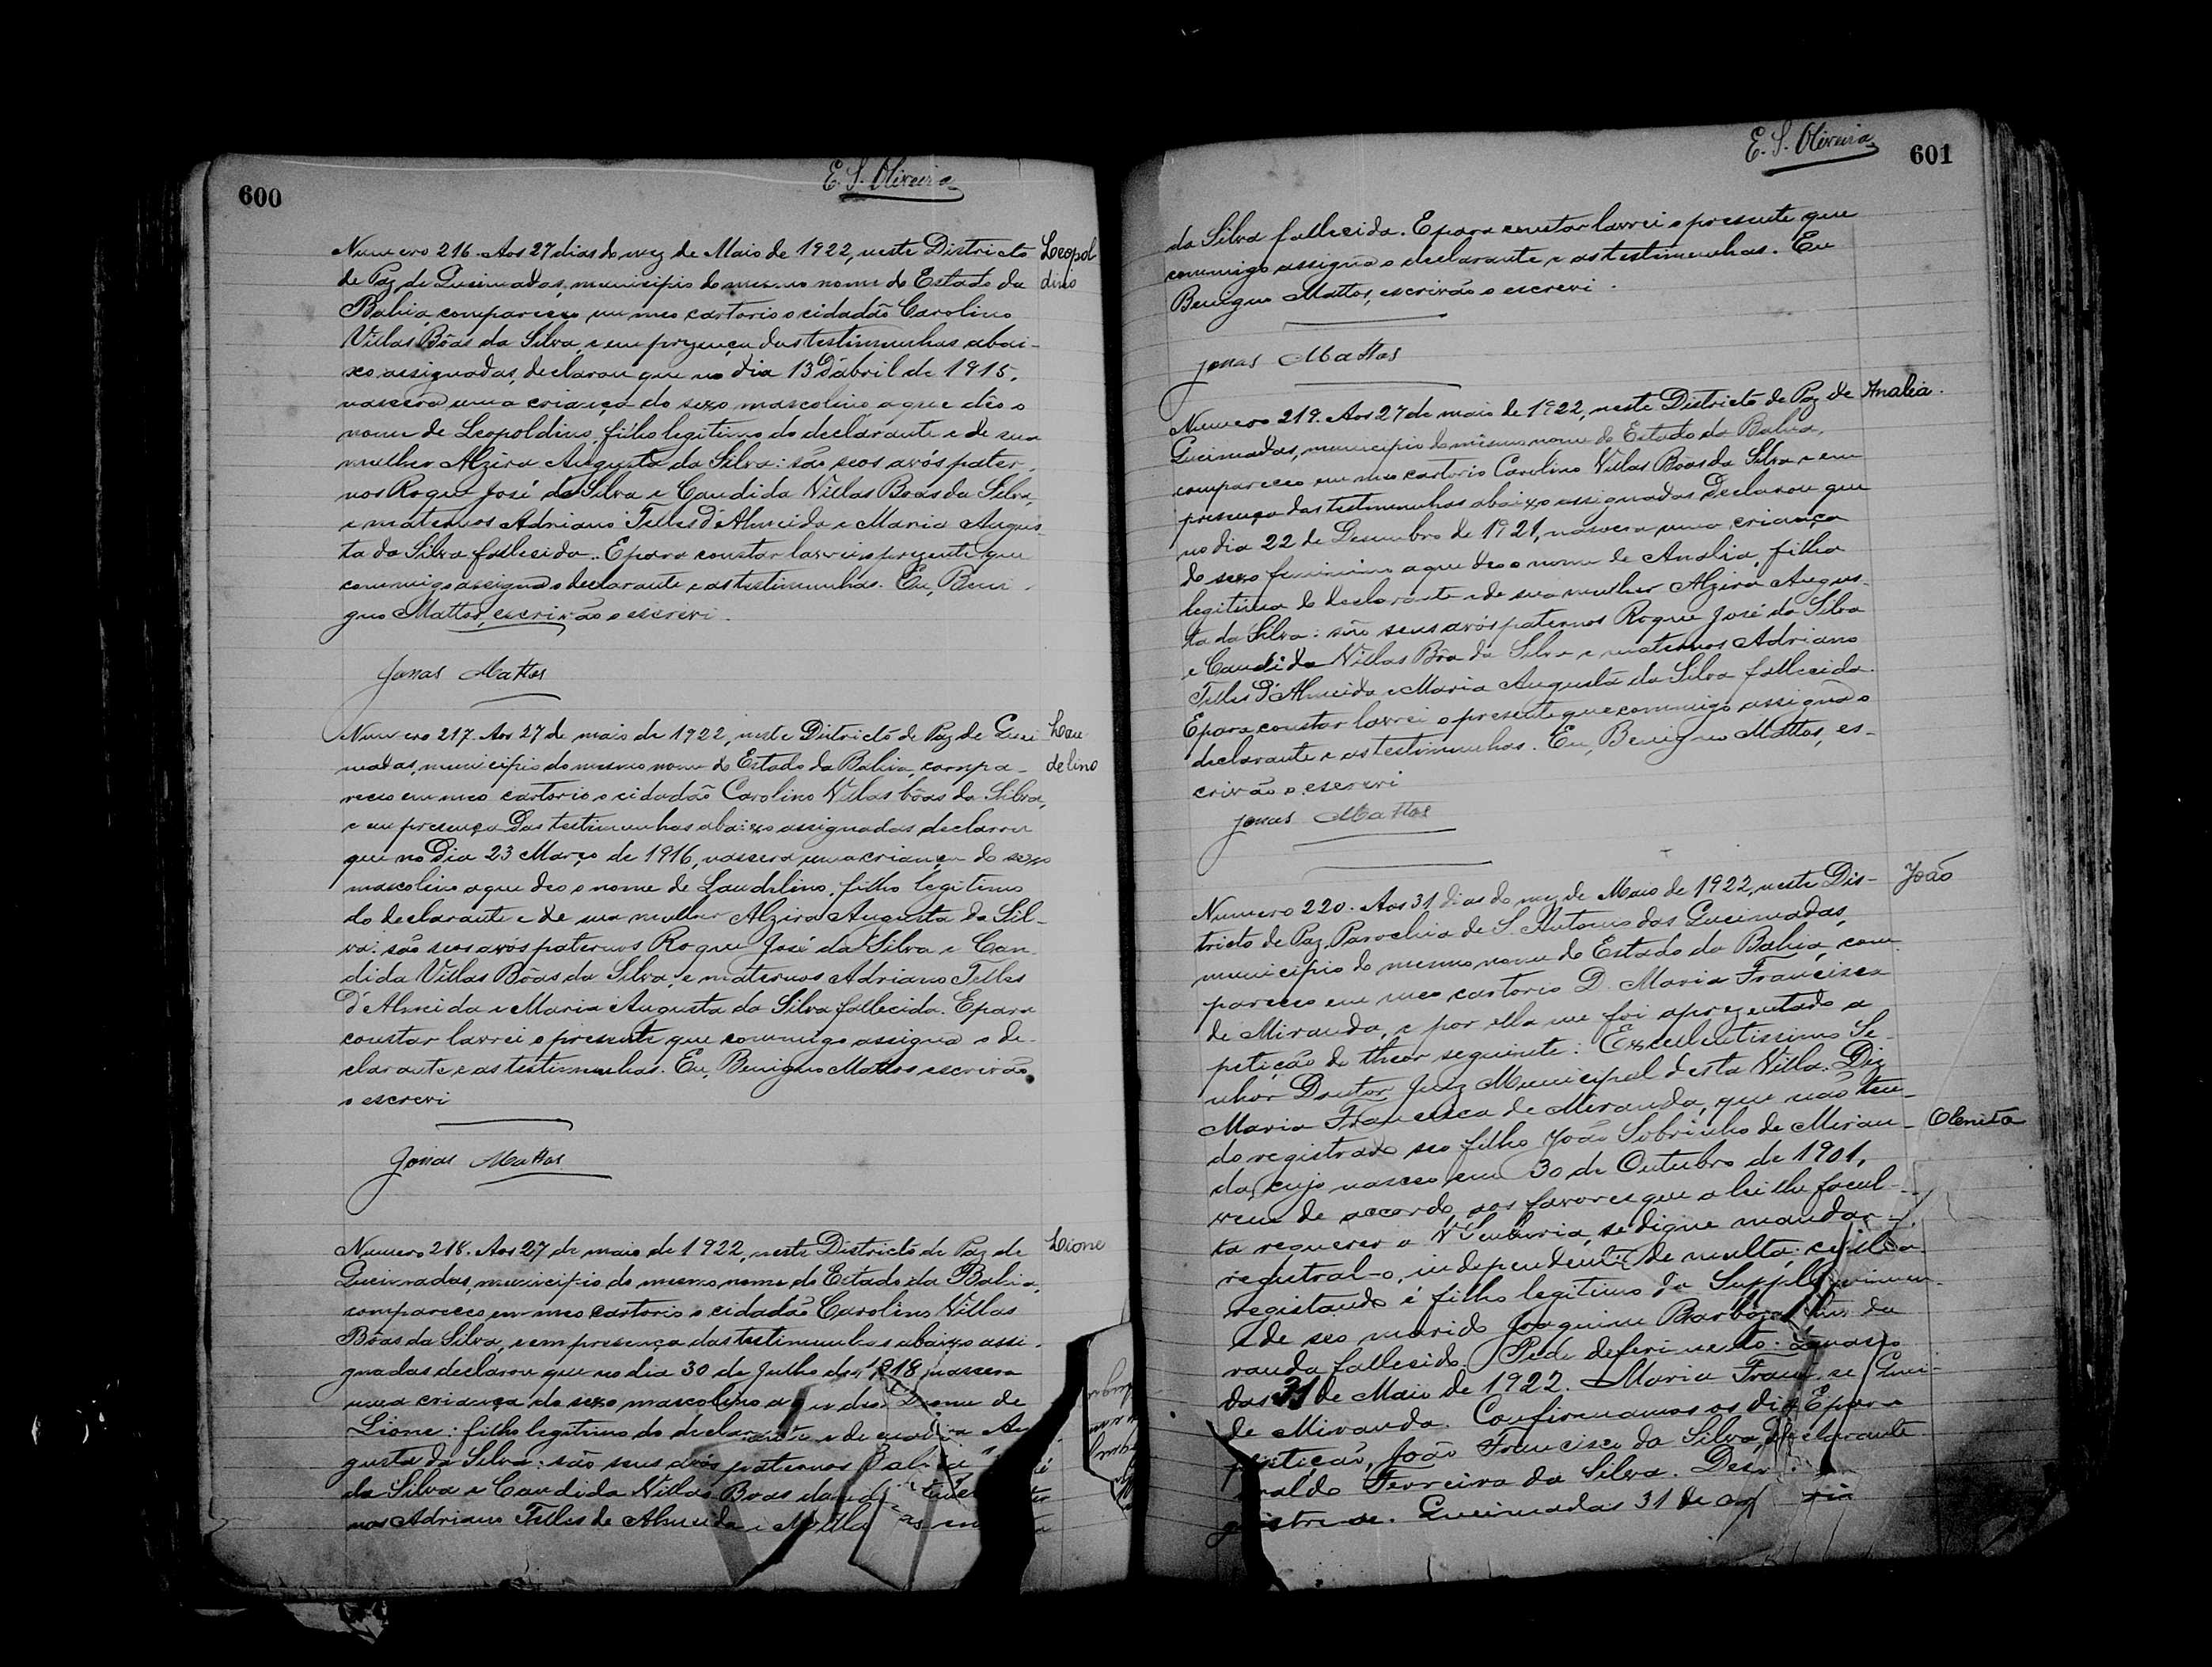 600
E. S. Oliveira
Numero 216. Aos 27 dias do mez de Maio de 1922, neste Districto
Leopol
de Paz de Queimadas, municipio do mesmo nome do Estado da
dino
Bahia, compareceo em meo cartorio o cidadão Carolino
Villas Bôas da Silva, e em prezença das testimunhas abai-
xo assignadas, declarou que no dia 13 d'abril de 1915,
nascera uma criança do sexo masculino, a que dêo o
nome de Leopoldino, filho legitimo do declarante e de sua
mulher Alzira Augusta da Silva: são seos avós pater-
nos Roque José da Silva e Candida Villas Boas da Silva,
e maternos Adriano Telles d'Almeida e Maria Augus-
ta da Silva fallecida. E para constar lavrei o prezente que
commigo assigna o declarante e as testimunhas. Eu, Beni-
gno Mattos, escrivão o escrevi.
Jonas Mattos
Numero 217. Aos 27 de maio de 1922, neste Districto de Paz de Quei
Lau
madas, municipio do mesmo nome do Estado da Bahia, compa-
delino
receo em meo cartorio o cidadão Carolino Villas bôas da Silva,
e em presença das testimunhas abaixo assignadas declarou
que no dia 23 Março de 1916, nascera uma criança do sexo
mascolino a que deo o nome de Laudelino, filho legitimo
do declarante e de sua mulher Alzira Augusta da Sil-
va: são seos avós paternos Roque José da Silva e Can-
dida Villas Bôas da Silva, e maternos Adriano Telles
d'Almeida e Maria Augusta da Silva fallecida. E para
constar lavrei o presente que commigo assigna o de-
clarante e as testimunhas. Eu, Benigno Mattos escrivão
o escrevi
Jonas Mattos
Numero 218. Aos 27 de maio de 1922, neste Districto de Paz de
Lione
Queimadas, municipio do mesmo nome do Estado da Bahia,
compareceo em meo cartorio o cidadão Carolino Villas
Bôas da Silva, e em presença das testimunhas abaixo assi-
gnadas declarou que no dia 30 de Julho de 1918 nascera
uma criança do sexo mascolino a
Lione: filho legitimo do declarante e de
gusta da Silva: são seus avós paternos
da Silva e Candida Villas Boas da
nos Adriano Telles de Almeida e
E. S. Oliveira
601
da Silva fallecida. E para constar lavrei o presente que
commigo assigna o declarante e as testimunhas. Eu
Benigno Mattos, escrivão o escrevi.
Jonas Mattos
Numero 219. Aos 27 de maio de 1922, neste Districto de Paz de
Analia.
Queimadas, municipio do mesmo nome do Estado da Bahia,
compareceo em meo cartorio Carolino Villas Bôas da Silva e em
presença das testimunhas abaixo assignadas declarou que
no dia 22 de Desembro de 1921, nascera uma criança
do sexo feminino a que deo o nome de Analia, filha
legitima do declarante e de sua mulher Alzira Augus-
ta da Silva: são seus avós paternos Roque José da Silva
e Candida Villas Bôa da Silva e maternos Adriano
Telles d'Almeida e Maria Augusta da Silva fallecida.
E para constar lavrei o presente que commigo assigna o
declarante e as testimunhas. Eu, Benigno Mattos, es-
crivão o escrevi
Jonas Mattos
Numero 220. Aos 31 dias do mez de Maio de 1922, neste Dis-
João
tricto de Paz, Parochia de S. Antonio das Queimadas,
municipio do mesmo nome do Estado da Bahia, com-
pareceo em meo cartorio D. Maria Francisca
de Miranda, e por ella me foi aprezentado a
petição do theor seguinte: Excellentissimo Se-
nhor Doutor Juiz Municipal desta Villa. Diz
Maria Francisca de Miranda, que não ten-
do registrado seo filho João Sobrinho de Miran-
Olenita
da, cujo nasceo em 30 de Outubro de 1901,
vem de accordo aos favores que a lei lhe facul-
ta requerer a V. Senhoria, se digne mandar
registral-o, independente de multa; cujo
registando é filho legitimo da
e de seo marido Joaquim Barboza
randa fallecido. Pede deferimento.
das 31 de Maio de 1922. Maria
de Miranda. Confirmamos os
petição, João Francisco da Silva, declarante
Ferreira da Silva.
Queimadas 31 de